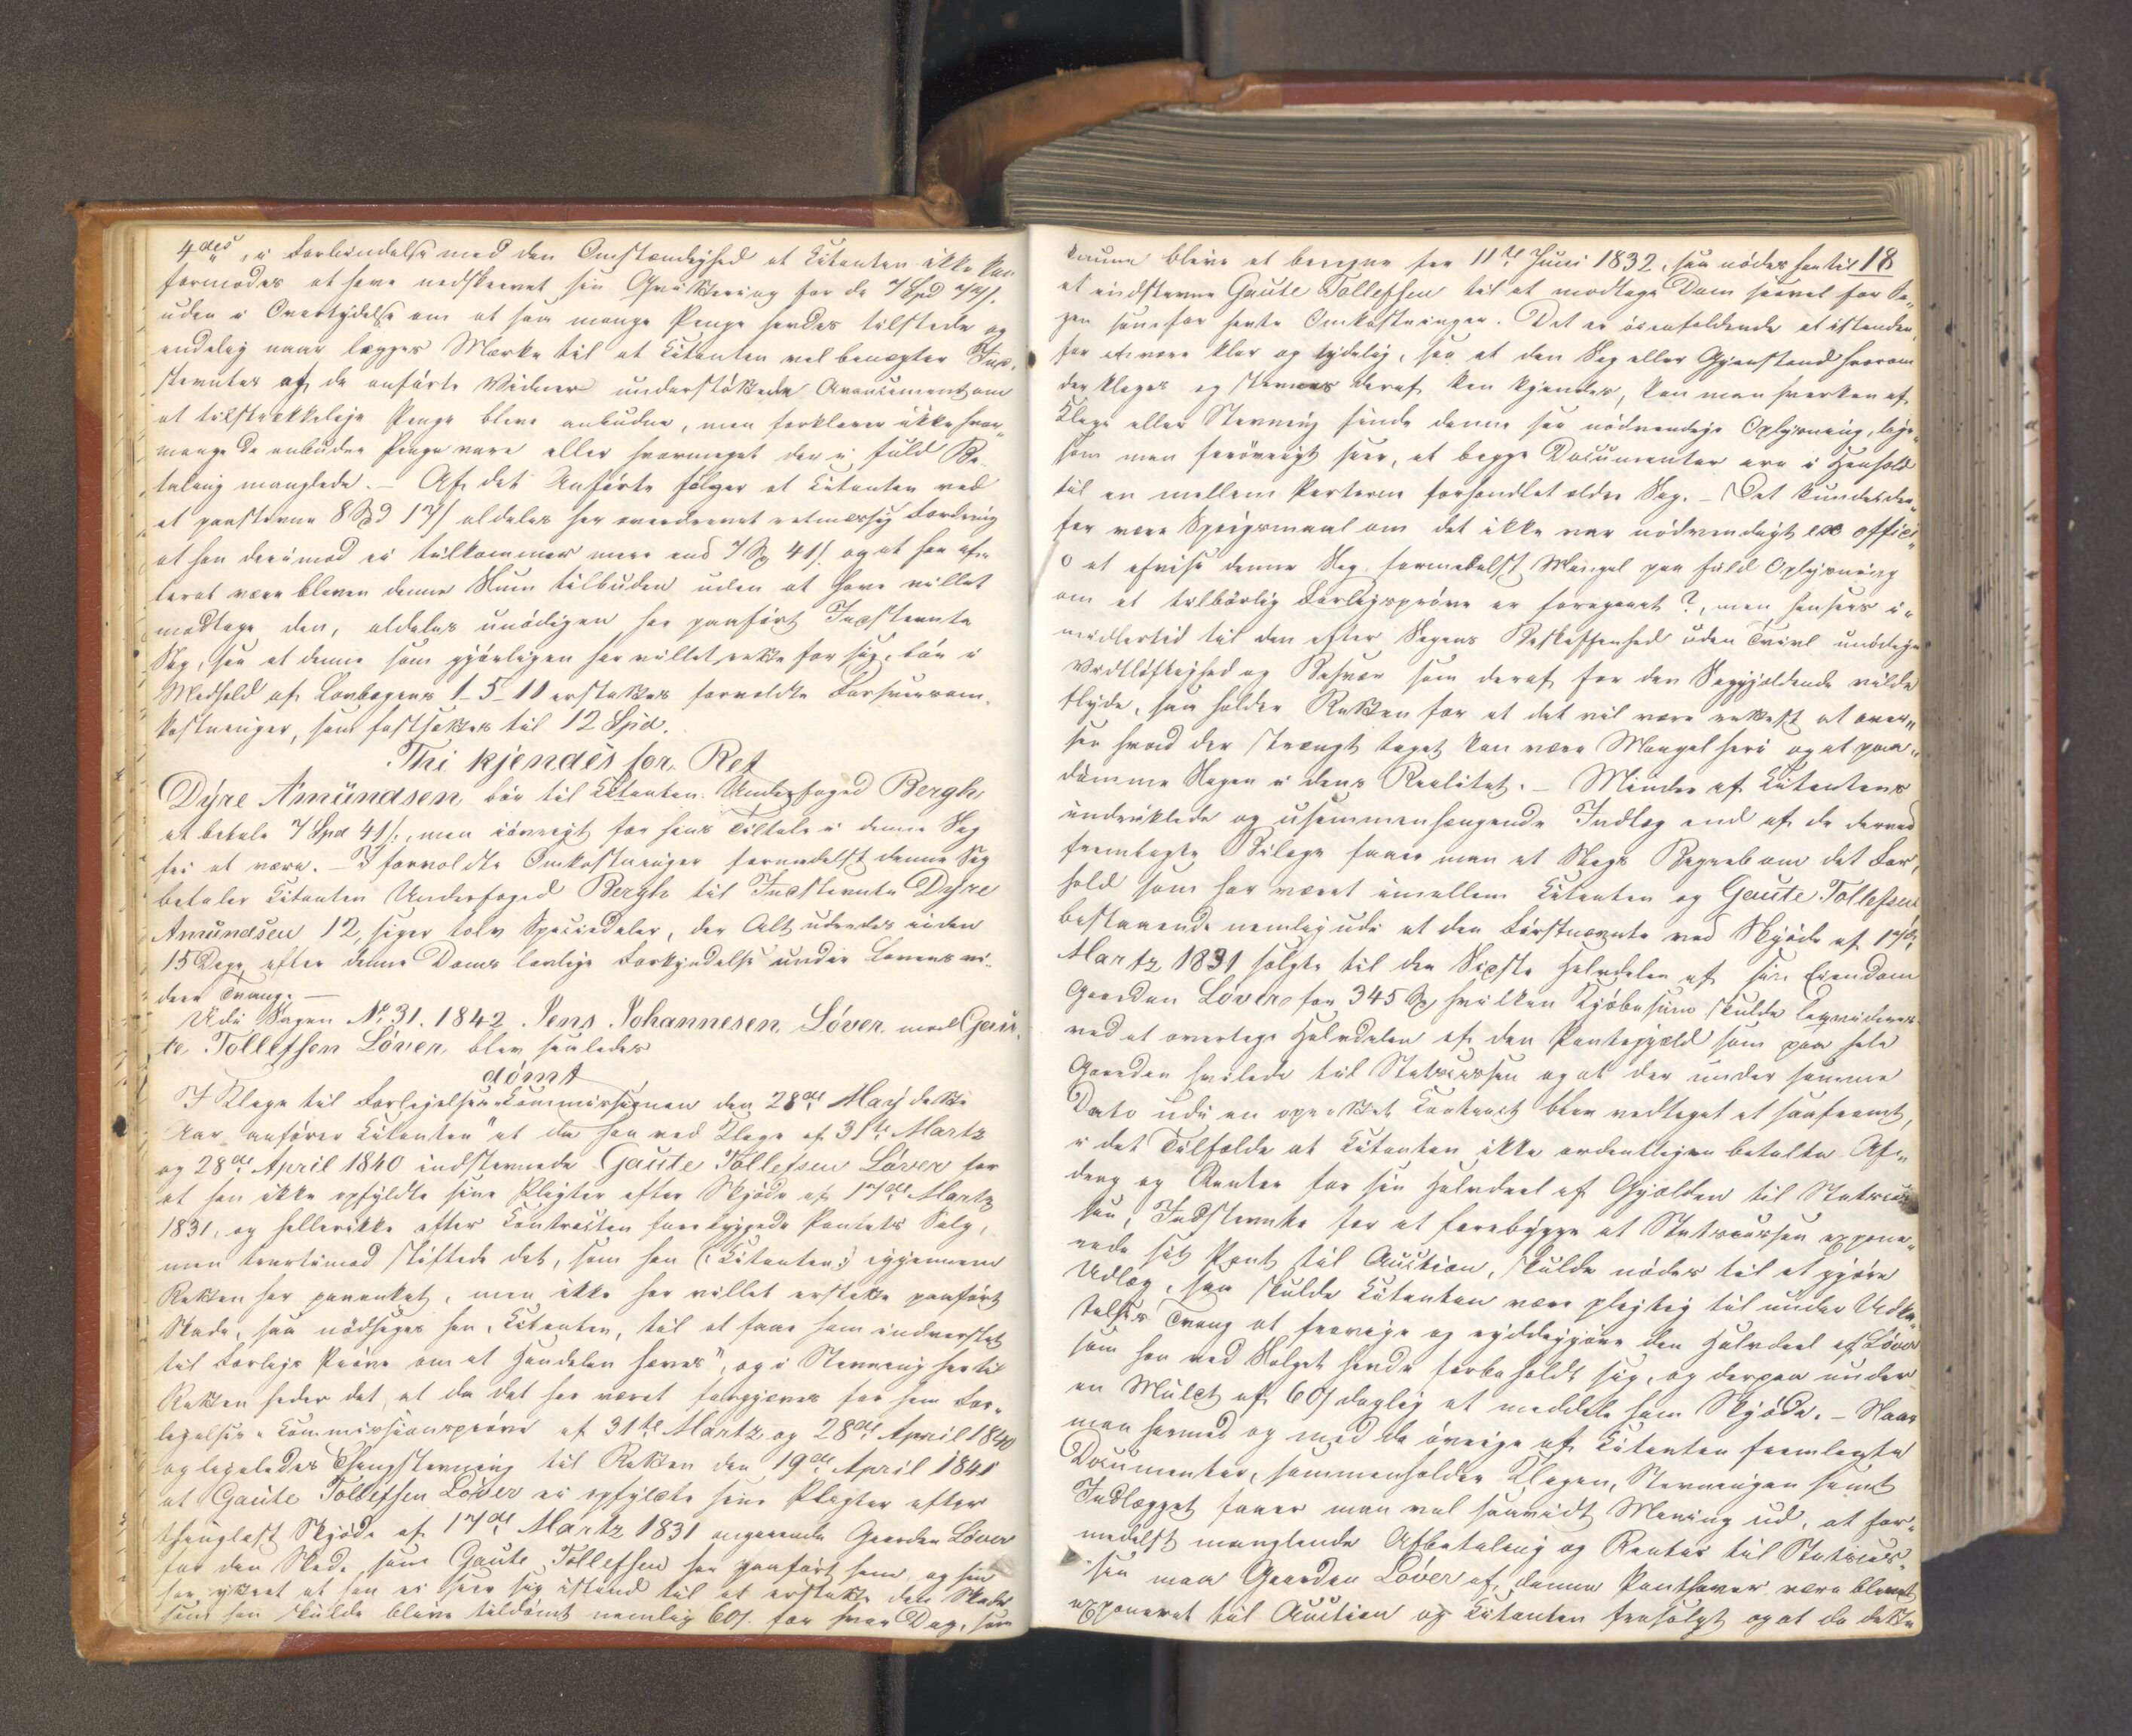 4des, i Forbindelse med den Omstændighed at Citanten ikke kan
formodes at have nedskrevet sin Qvittering for de 7 Spd
uden i Overtydelse om at saa mange Penge havdes tilstede og
endelig naar lægges Mærke til at Citanten vel benægter Ind-
stevntes af de anførte Vidner understøttede Anbringende om
at tilstrækkelige Penge bleve anbudne, men forklarer ikke hvor
mange de anbudne Penge vare eller hvormeget der i fuld Be-
taling manglede. – Af det Anførte følger at Citanten ved
at paastevne 8 Spd 17 s aldeles har overdrevet retmæssig Fordring
at han derimod ei tilkommer mere end 7 Sp 41 s. og at han
været være bleven denne Sum tilbuden uden at have villet
modtage den, aldeles unødigen har paaført Indstevnte
Sag, saa at denne som gjørligen har villet rette for sig, bør i
Medhold af Lovbogens 1-5-11 erstattes forvoldte Forsvarsom-
kostninger, som fastsættes til 12 Spd.
Thi kjendes for Ret
Dyre Amundsen bør til Citanten Underfoged Bergh
at betale 7 Spd 41 s., men iøvrigt for hans Tiltale i denne Sag
fri at være. – I forvoldte Omkostninger formedelst denne Sag
betaler Citanten Underfoged Bergh til Indstevnte Dyre
Amundsen 12, siger tolv Speciedaler, der Alt udredes inden
15 Dage efter denne Doms lovlige Forkyndelse under Lovens vi-
dere Tvang. –
Udi Sagen No 31. 1842 Jens Johannesen Löver mod Gau-
te Tollefsen Löver, blev saaledes
dømt
I Klage til Forligelses Commissionen den 28de Maj dette
Aar anfører Citanten "at da han ved Klage af 31te Martz
og 28de April 1840 indstevnede Gaute Tollefsen Löver for
at han ikke opfyldte sine Pligter efter Skjøde af 17de Martz
1831, og hellerikke efter Contracten forebyggede Pantets Salg,
men tvertimod skiftede det, som han (: Citanten :) igjennem
Retten har paaanket, men ikke har villet erstatte paaført
Skade, saa nødsages han, Citanten, til at faae ham indvarslet
til Forligs Prøve om at Handelen hæves", og i Stevning hertil
Retten heder det, at da det har været forgjæves for ham For-
ligelses Commissionsprøve af 31te Martz og 28de April 1840
og ligeledes Thingstevning til Retten den 19de April 1841
at Gaute Tollefsen Löver ei opfyldte sine Pligter efter
thinglæst Skjøde af 17de Martz 1831 angaaende Gaarden Löver
for den Skade som Gaute Tollefsen har paaført ham, og han
har yttret at han ei seer sig istand til at erstatte den Skade
som han skulde blive tildømt nemlig 60 s. for hver Dag, som
kunne blive at beregne fra 11te Juni 1832, saa nødes han til 18
at indstevne Gaute Tollefsen til at modtage Dom saavel for Sa-
gen somfor hente Omkostninger. Det er iøienfaldende at istedet
for at være klar og tydelig, saa at den Sag eller Gjenstand hvorom
der klages og stevnes deraf kan kjendes, kan man hverken af
Klage eller Stevning finde denne saa nødvendige Oplysning, lige-
som man forøvrigt seer, at begge Documenter ere i Henhold
til en mellem Parterne forhandlet ældre Sag. – Det kunde der-
for være Spørgsmaal om det ikke var nødvendigt ex offici-
o at afvise denne Sag formedelst Mangel paa fuld Oplysning
om at tilbørlig Forligsprøve er foregaaet?, men hensees i-
midlertid til den efter Sagens Beskaffenhed uden Tvivl unødige
Vidtløftighed og Besvær som deraf for den Sagsøgende vilde
flyde, saa holder Retten for at det vil være rettest at over-
see hvad der strængt taget kan være Mangel heri og at paa-
dømme Sagen i dens Realitet. – Mindre af Citantens
indviklede og usammenhængende Indlæg end af de derved
fremlagte Bilage faaer man et Slags Begreb om det For-
hold som har været imellem Citanten og Gaute Tollefsen
bestaaende nemlig udi at den Førstnævnte ved Skjøde af 17de
Martz 1831 solgte til den Sidste Halvdelen af sin Eiendom
Gaarden Löver for 345 Sp, hvilken Kjøbesum skulde liqvideres
ved at overtage Halvdelen af den Pantegjæld som paa hele
Gaarden hvilede til Statscassen og at der under samme
Dato udi en oprettet Contract blev vedtaget at saafremt,
i det Tilfælde at Citanten ikke ordentligen betalte Af-
drag og Renter for sin Halvdeel af Gjælden til Statscas-
sen, Indstevnte for at forebygge at Statscassen expone-
rede sit Pant til Auction, skulde nødes til at gjøre
Udlæg, saa skulde Citanten være pligtig til under Udka-
stelses Tvang at fravige og ryddiggjøre den Halvdeel af Löver
som han ved Salget havde forbeholdt sig, og derpaa under
en Mulct af 60 s daglig at meddele ham Skjøde. – Naar
man hermed og med de øvrige af Citanten fremlagte
Documenter, sammenholder Klagen, Stevningen samt
Indlægget faaer man vel saavidt Mening ud, at for-
medelst manglende Afbetaling og Renter til Statscas-
sen maa Gaarden Löver af denne Panthaver være blevet
exponeret til Auction og Citanten frasolgt og at da dette